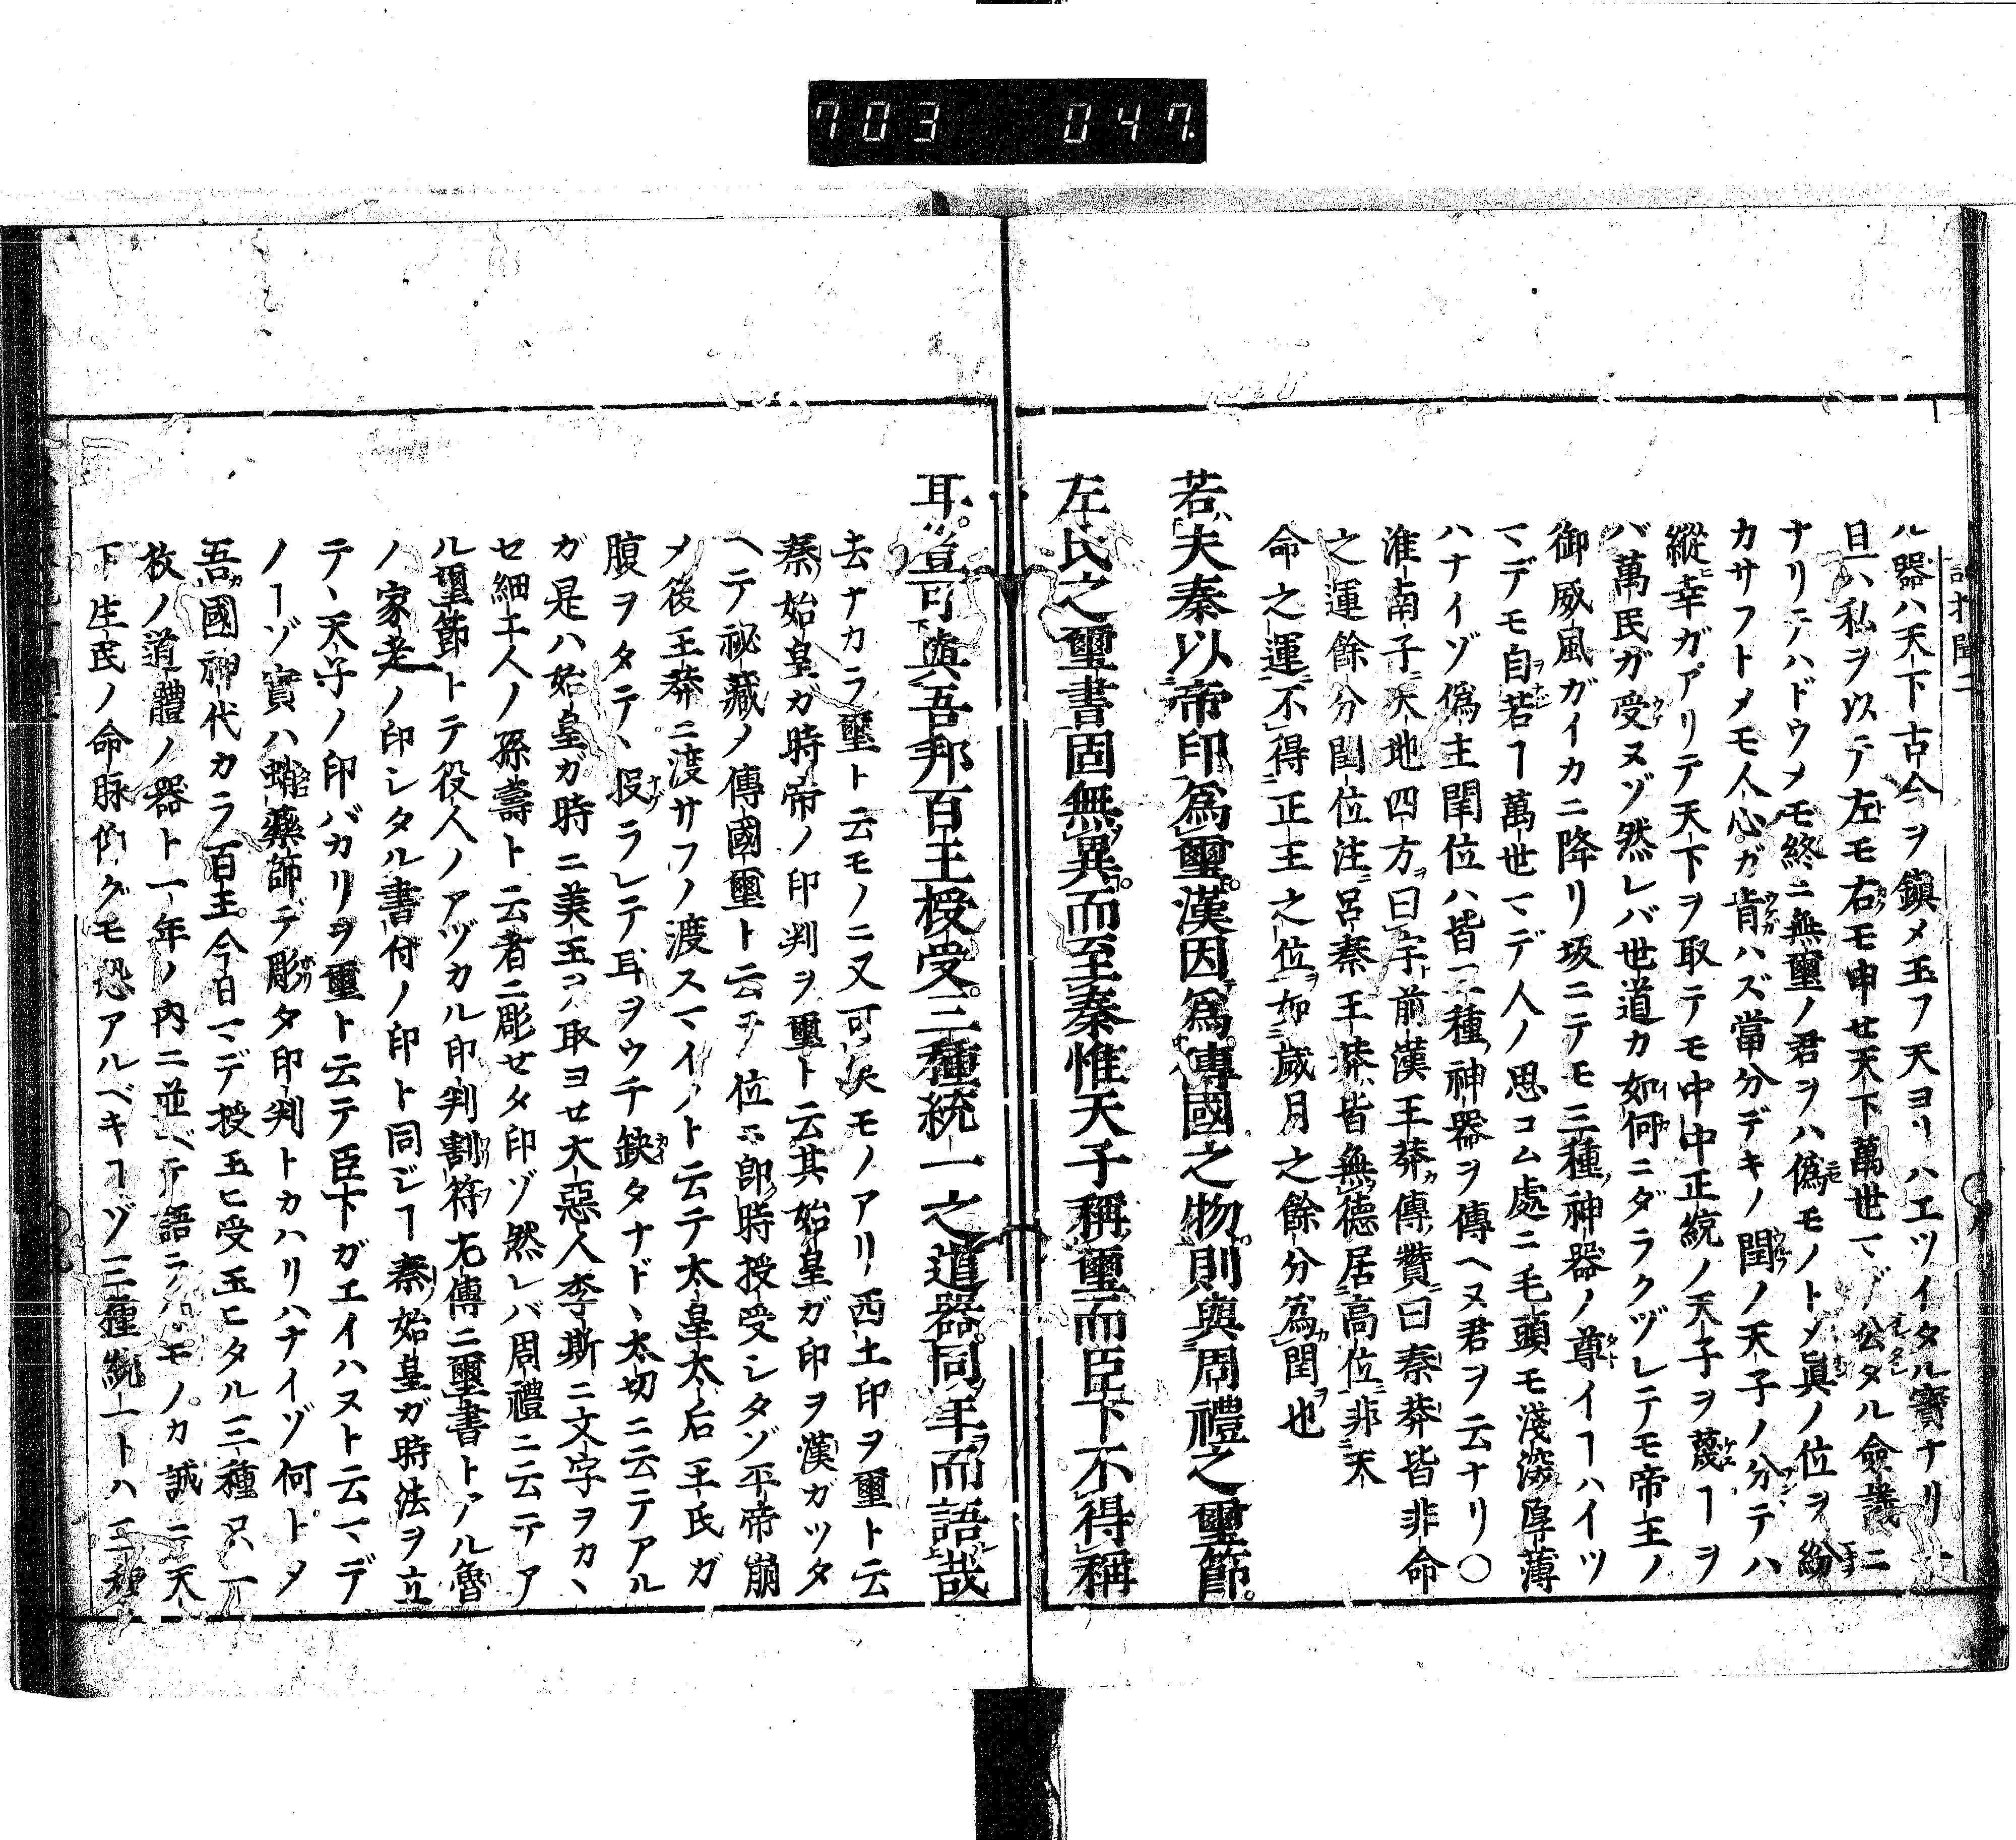 703 047
ル器ハ天下古今ヲ鎭メ玉フ天ヨリハエツイタル寶ナリ一
旦ハ私ヲ以テ左モ右モ申セ天下萬世マデノ公タル僉議ニ
ナリテハドウメモ終ニ無璽ノ君ヲハ偽モノトメ眞ノ位ヲ紛
カサフトメモ人心ガ肯ハズ當分デキノ閏ノ天子ノ分テハ
縱幸ガアリテ天下ヲ取テモ中中正統ノ天子ヲ蔑ヿヲ
バ萬民ガ受ヌゾ然レバ世道カ如何ニダラクヅレテモ帝主ノ
御威風ガイカニ降リ坂ニテモ三種神器ノ尊イヿハイツ
マデモ自若ヿ萬世マデ人ノ思コム處ニ毛頭モ淺深厚薄
ハナイゾ偽主閏位ハ皆三種神器ヲ傳ヘヌ君ヲ云ナリ〇
淮南子天地四方曰宇前漢王莽傳賛曰秦莽皆非命
之運餘分閏位注呂秦王莽皆無德居高位非天
命之運不得正王之位如歲月之餘分為閏也
若夫秦以帝印為璽漢因為傳國之物則與周禮之璽節
左氏之璽書固無異而至秦惟天子稱璽而臣下不得稱
耳豈可與吾邦百王授受三種統一之道器同年而語哉
去ナカラ璽ト云モノニ又可笑モノアリ西土印ヲ璽ト云
秦始皇ガ時帝ノ印判ヲ璽ト云其始皇ガ印ヲ漢ガツタ
ヘテ祕藏メ傳國璽ト云テ位ニ即時授受シタゾ平帝崩
メ後王莽ニ渡サフノ渡スマイノト云テ太皇太后王氏ガ
腹ヲタテヽ投ラレテ耳ヲウチ缺タナドヽ大切ニ云テアル
ガ是ハ始皇ガ時ニ美玉ヲ取ヨセ大惡人李斯ニ文字ヲカヽ
セ細工人ノ孫壽ト云者ニ彫セタ印ゾ然レバ周禮ニ云テア
ル璽節トテ役人ノアヅカル印判割符左傳ニ璽書トアル魯
ノ家老ノ印シタル書付ノ印ト同ジヿ秦始皇ガ時法ヲ立
テヽ天子ノ印バカリヲ璽ト云テ臣下ガエイハヌト云マデ
ノヿゾ實ハ蛸藥師デ彫タ印判トカハリハナイゾ何トメ
吾國神代カラ百王今日マデ授玉ヒ受玉ヒタル三種只一
枚ノ道體ノ器ト一年ノ内ニ並ベテ語ラルヽモノカ誠ニ天
下生民ノ命脉仰グモ恐アルベキヿゾ三種統一トハ三種